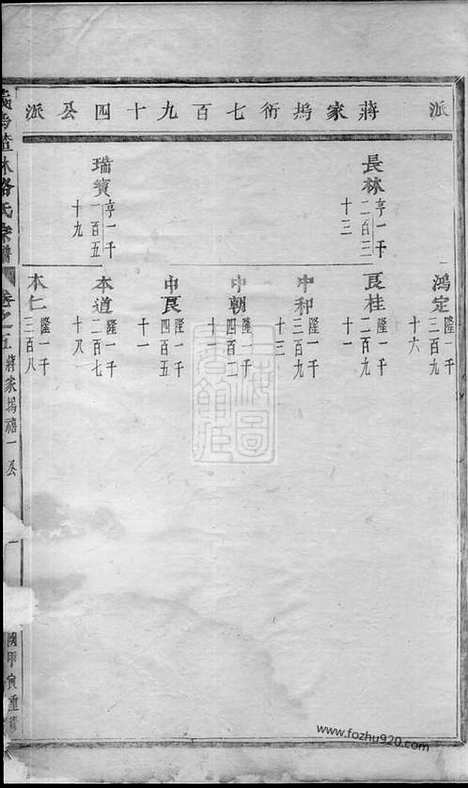 派
蔣家塢衍七百九十四公派
長林
亨一千
二百三
十三
瑞賓
亨一千
一百五
十九
鴻定
隆一千
三百九
十六
良桂
隆一千
二百九
十一
中和
隆一千
三百九
十三
中朝
隆一千
四百二
十一
中良
隆一千
四百五
十一
本道
隆一千
二百七
十八
本仁
隆一千
三百八
林駱氏宗譜
卷之五
蔣家塢禧一公
一
國甲寅重
www.fozhu920.com